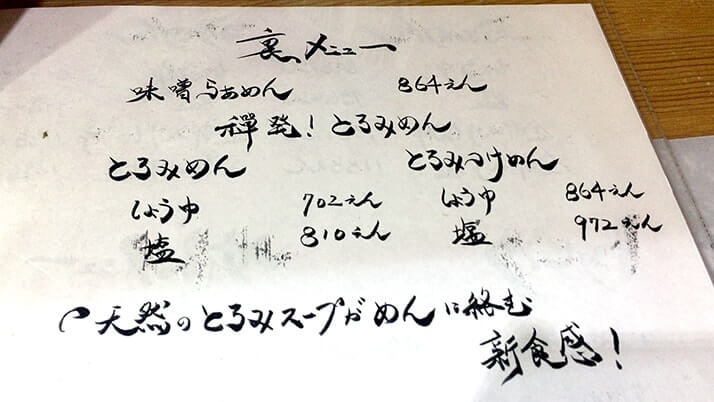 裏メニュー
味噌らぁめん 864えん
禅発！とろみめん
とろみめん とろみつけめん
しょうゆ 702えん しょうゆ 864えん
塩 810えん 塩 972えん
天然のとろみスープがめんに絡む
新食感！